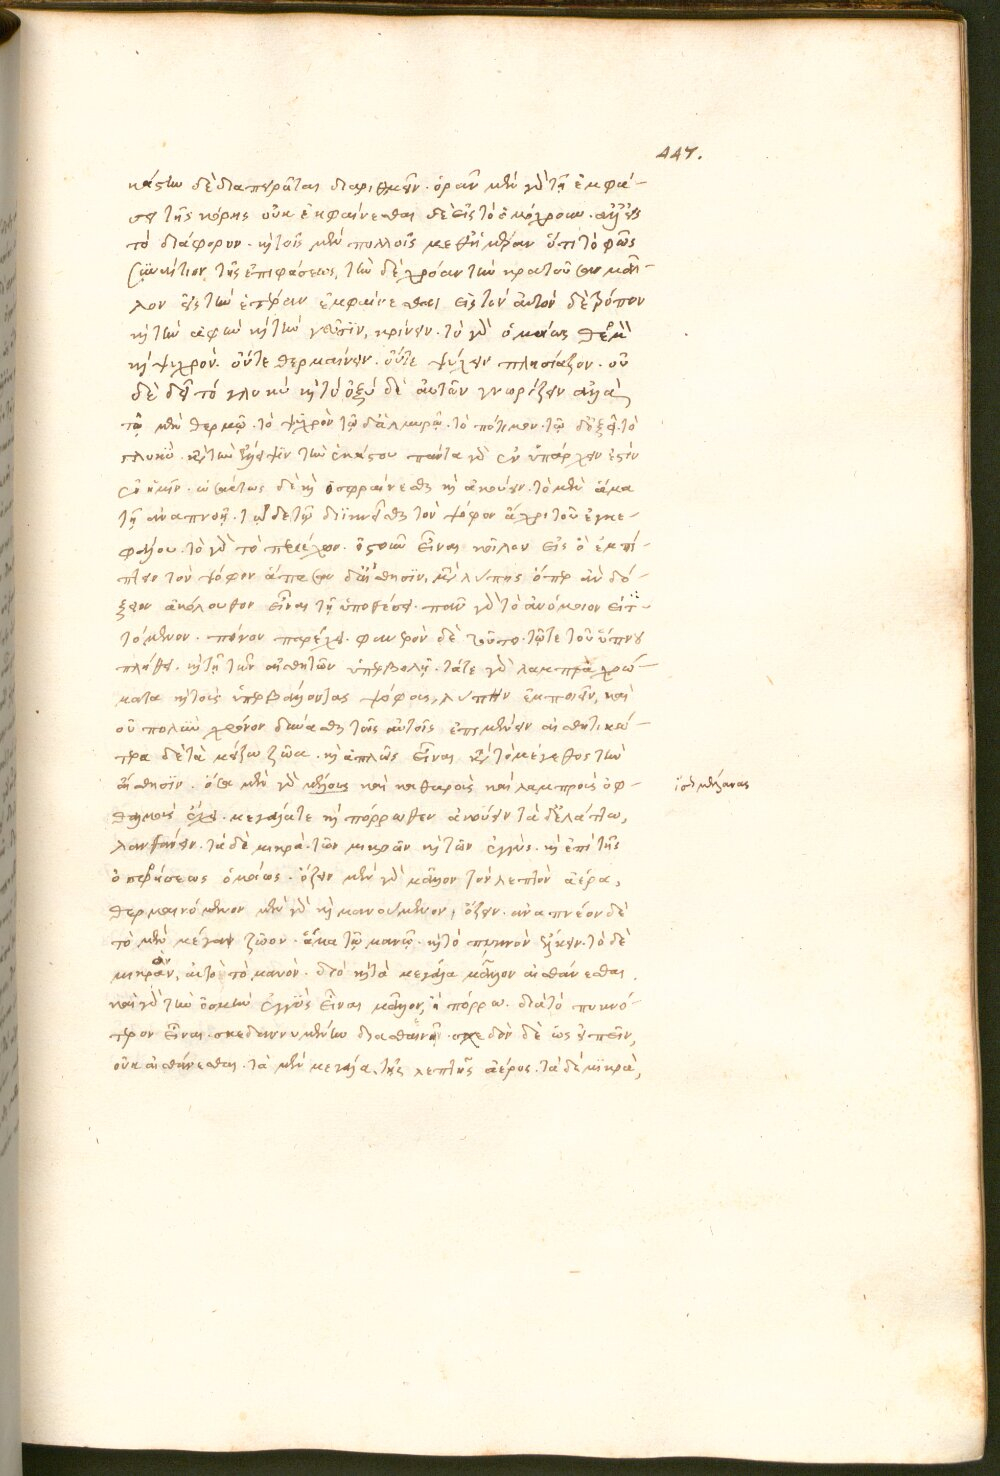 447.
κάστω δὲ διαπειρᾶται διαριθμεῖν. ὁρᾶν μὲν γὰρ τῇ ἐμφά-
σει τῆς κόρης οὐκ ἐμφαίνεσθαι δὲ εἰς τὸ ὁμόχρων. ἀλλ' εἰς
τὸ διάφορον. καὶ τοῖς μὲν πολλοῖς μεθ' ἡμέραν ὅτι τὸ φῶς
συναίτιον τῆς ἐμφάσεως, τὴν δὲ χρόαν τὴν κρατοῦσαν μᾶλ-
λον εἰς τὴν ἑτέραν ἐμφαίνεσθαι εἰς τὸν αὐτὸν δὲ τρόπον
καὶ τὴν ἁφὴν καὶ τὴν γεῦσιν, κρίνειν. τὸ γὰρ ὁμοίως θερμὸν
καὶ ψυχρὸν. οὔτε θερμαίνειν. οὔτε ψύχειν πλησιάζον. οὐ
δὲ δεῖ τὸ γλυκὺ καὶ τὸ ὀξὺ δι' αὐτῶν γνωρίζειν ἀλλὰ
τῷ μὲν θερμῷ. τὸ ψυχρὸν τῷ δ' ἁλμυρῷ. τὸ πότιμον. τῷ δ' ὀξεῖ. τὸ
γλυκὺ. κατὰ τὴν ἔλλειψιν τὴν ἑκάστου πάντα γὰρ ἐνυπάρχειν φησὶν
ἐν ἡμῖν. ὡσαύτως δὲ καὶ ὀσφραίνεσθαι καὶ ἀκούειν. τὸ μὲν ἅμα
τῇ ἀναπνοῇ. τὸ δὲ τῷ διϊκνεῖσθαι τὸν ψόφον ἄχρι τοῦ ἐγκε-
φάλου. τὸ γὰρ τὸ περιέχον. ὀστοῦν εἶναι κοῖλον εἰς ὃ ἐμπί-
πτειν τὸν ψόφον ἅπασαν δ' αἴσθησιν, μετὰ λύπης ὅπερ ἂν δό-
ξειεν ἀκόλουθον εἶναι τῇ ὑποθέσει. πᾶν γὰρ τὸ ἀνόμοιον ἁπ-
τόμενον. πόνον παρέχει. φανερὸν δὲ τοῦτο. τῷ τε τοῦ ὕπνου
πλήθει. καὶ τῇ τῶν αἰσθητῶν ὑπερβολῇ. τά τε γὰρ λαμπρὰ χρώ-
ματα καὶ τοὺς ὑπερβάλλοντας ψόφους, λύπην ἐμποιεῖν, καὶ
οὐ πολὺν χρόνον δύνασθαι τοῖς αὐτοῖς ἐπιμένειν αἰσθητικώ-
τερα δὲ τὰ μείζω ζῶα. καὶ ἁπλῶς εἶναι κατὰ τὸ μέγεθος τὴν
αἴσθησιν. ὅσα μὲν γὰρ μεγάλους καὶ καθαροὺς καὶ λαμπροὺς ὀφ-
θαλμοὺς ἔχει. μεγάλα τε καὶ πόρρωθεν ἀκούειν τὰ δ' ἐλάττω,
λανθάνειν. τὰ δὲ μικρὰ. τῶν μικρῶν καὶ τῶν ἐγγύς. καὶ ἐπὶ τῆς
ὀσφρήσεως ὁμοίως. ὄζειν μὲν γὰρ μᾶλλον τὸν λεπτὸν ἀέρα,
θερμαινόμενον μὲν γὰρ καὶ μανούμενον, ὄζειν. ἀναπνέον δὲ
τὸ μὲν μέγαν ζῶον. ἅμα τῷ μανῷ. καὶ τὸ πυκνὸν ἕλκειν. τὸ δὲ
μικρὸν, αὐτὸ τὸ μανὸν. διὸ καὶ τὰ μεγάλα μᾶλλον αἰσθάνεσθαι.
καὶ γὰρ τὴν ὀσμὴν ἐγγὺς εἶναι μᾶλλον, ἢ πόρρω. διὰ τὸ πυκνό-
τερον εἶναι. σκεδαννυμένην δὲ ἀσθενῆ. σχεδὸν δὲ ὡς εἰπεῖν,
οὐκ αἰσθάνεσθαι. τὰ μὲν μεγάλα, τῆς λεπτῆς ἀέρος. τὰ δὲ μικρὰ,